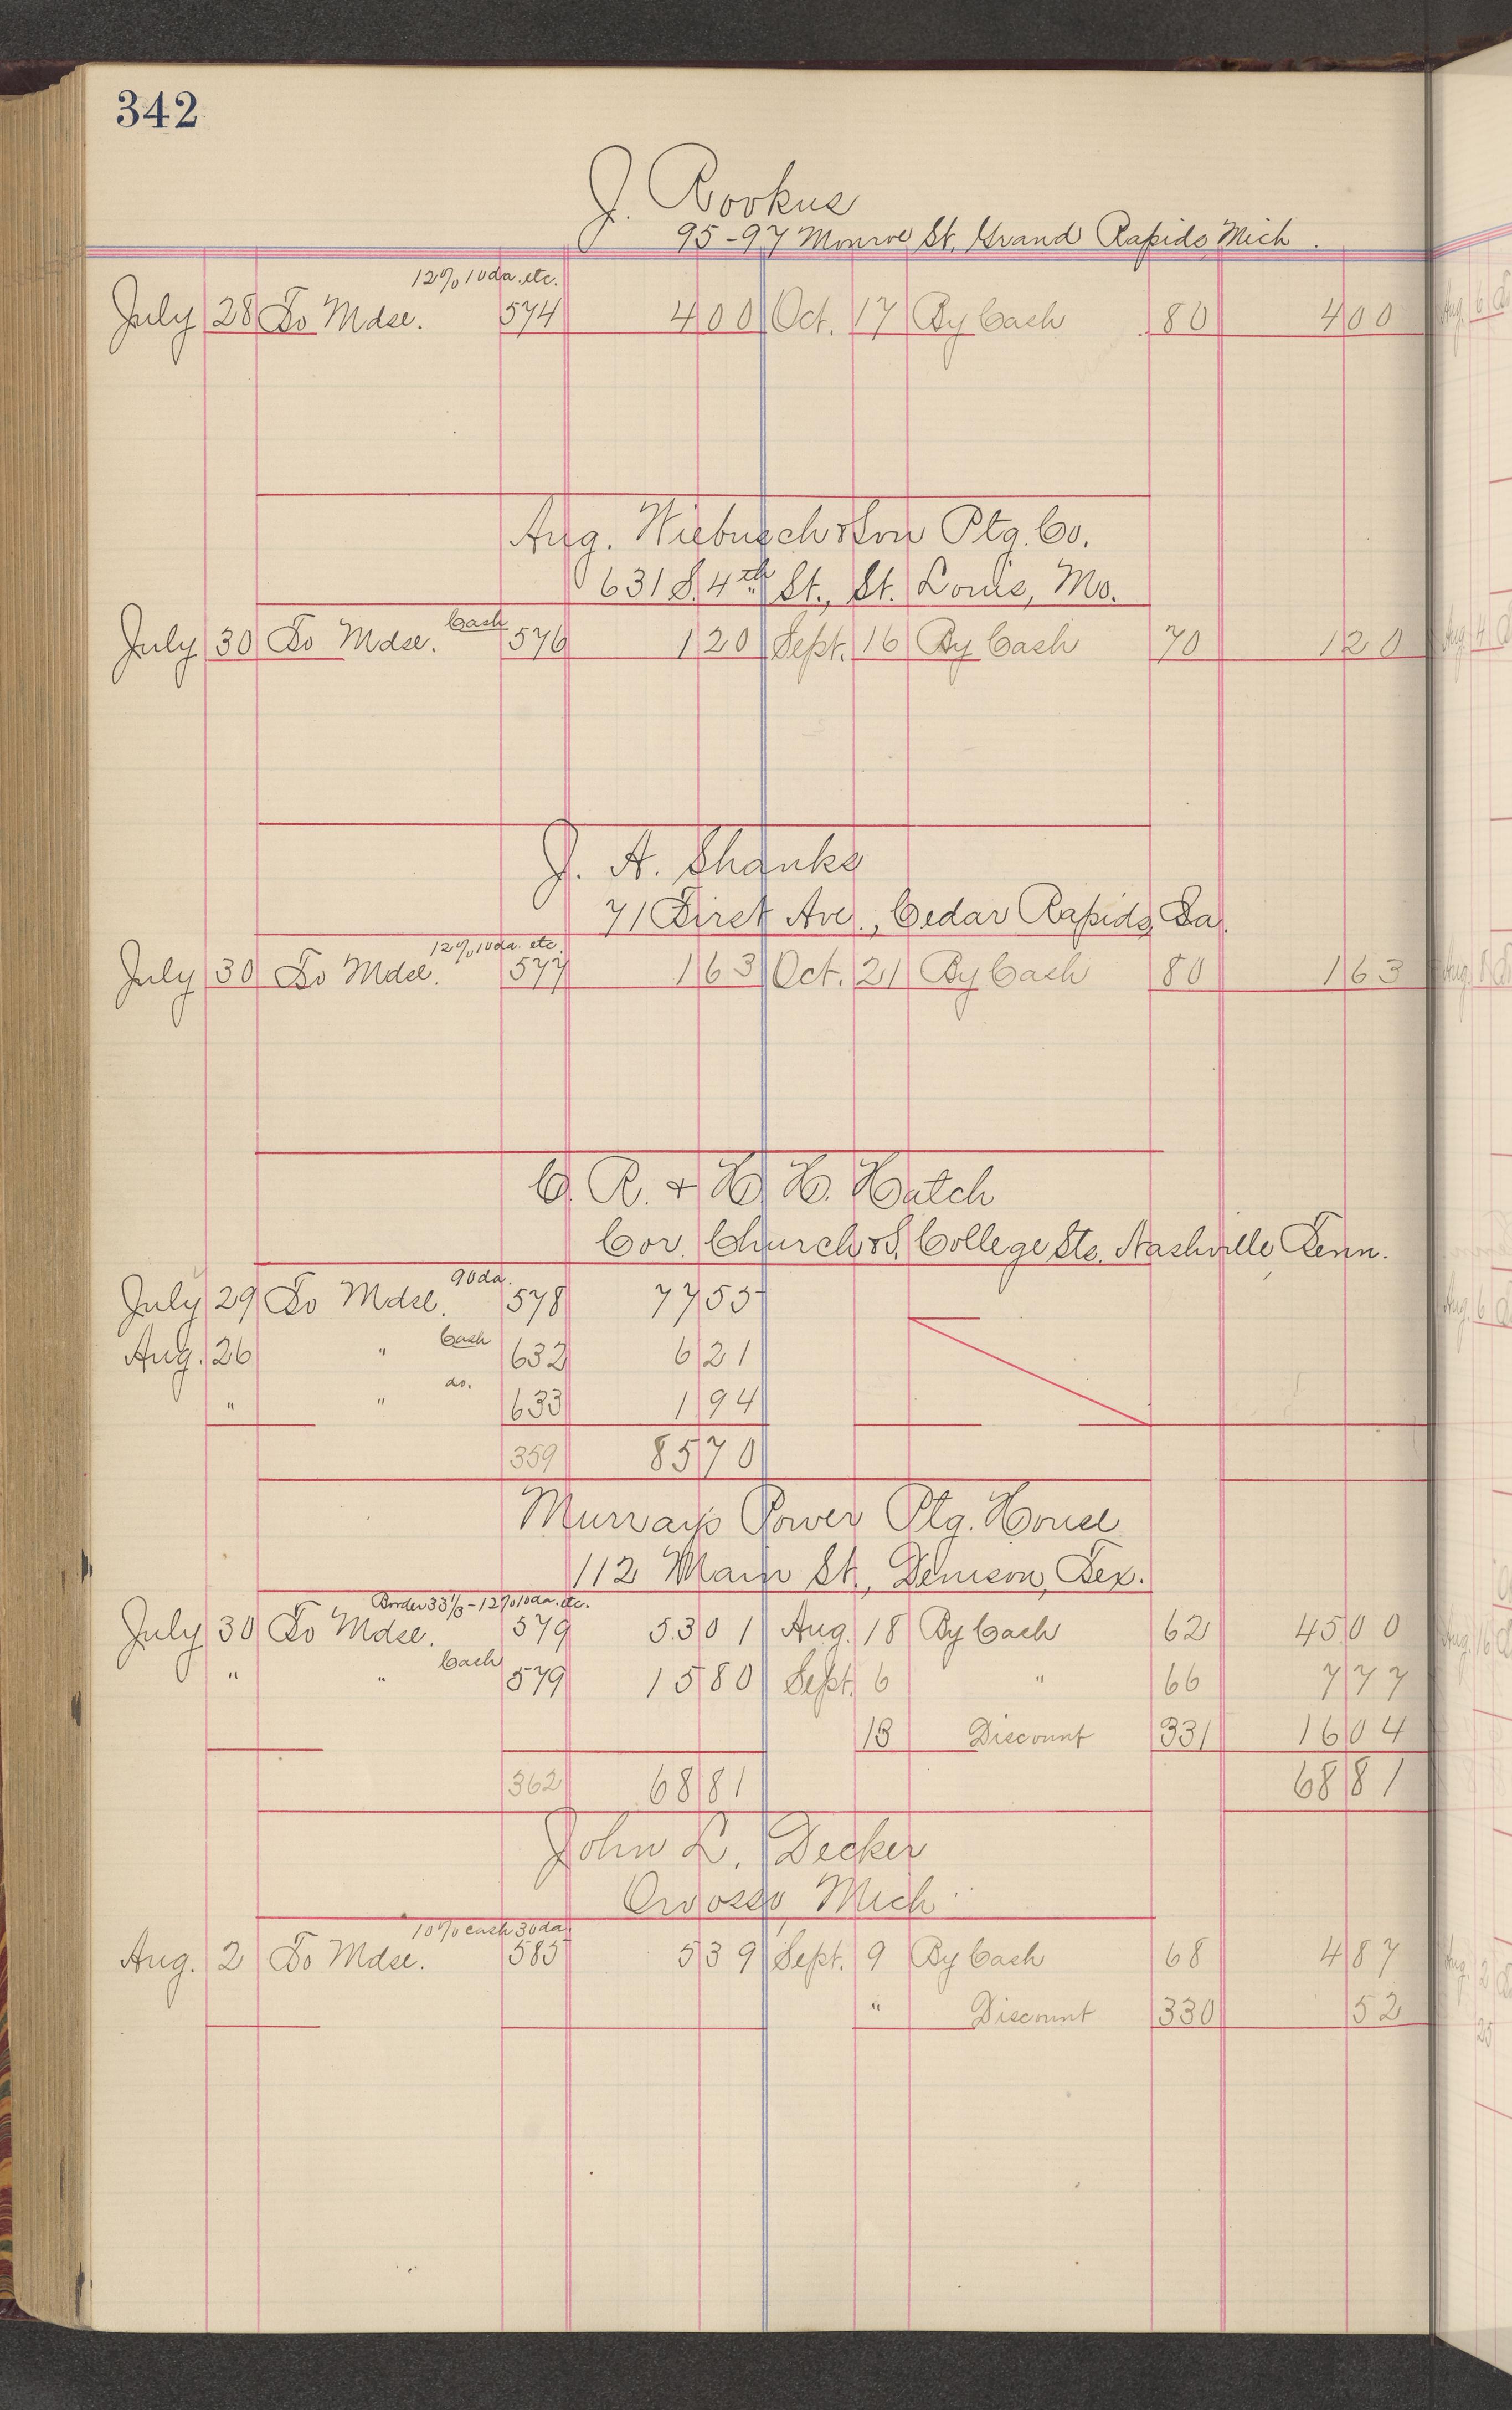 342
J. Rookus
95-97 Monroe St. Grand Rapids, Mich.
12% 10 da. etc.
July 28 To Mdse. 574 4 00 Oct. 17 By Cash 80 4 00
Aug. Wiebusch & Son Ptg. Co.
631 S. 4th St., St. Louis, Mo.
Cash
July 30 To Mdse. 576 1 20 Sept. 16 By Cash 70 1 20
J. A. Shanks
71 First Ave., Cedar Rapids, Ia.
12% 10 da. etc.
July 30 To Mdse. 577 1 63 Oct. 21 By Cash 80 1 63
C. R. & H. H. Hatch
Cor. Church & S. College Sts. Nashville, Tenn.
90 da.
July 29 To Mdse. 578 77 55
Cash
Aug. 26 " 632 6 21
do.
" " 633 1 94
359 85 70
Murray's Power Ptg. House
112 Main St., Denison, Tex.
Border 33 1/3 - 12% 10 da. etc.
July 30 To Mdse. 579 53 01 Aug. 18 By Cash 62 45 00
Cash
" " 579 15 80 Sept. 6 " 66 7 77
13 Discount 331 16 04
362 68 81 68 81
John L. Decker
Owosso Mich.
10% cash 30 da.
Aug. 2 To Mdse. 585 5 39 Sept. 9 By Cash 68 4 87
" Discount 330 52